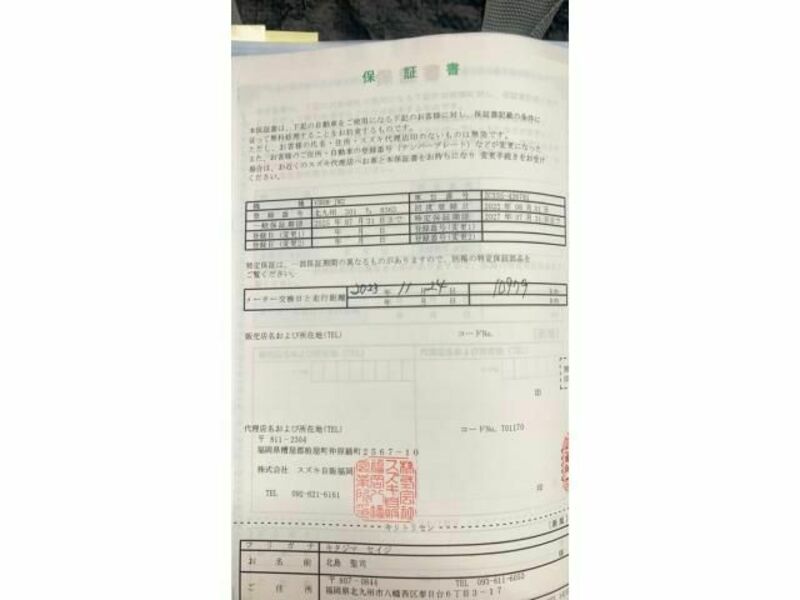 保証書
本保証書は、下記の自動車をご使用になる下記のお客様に対し、保証書記載の条件に
従って無料修理することをお約束するものです。
ただし、お客様の氏名・住所・スズキ代理店印のないものは無効です。
また、お客様のご住所・自動車の登録番号（ナンバープレート）などが変更になった
場合は、お近くのスズキ代理店へお車と本保証書をお持ちになり 変更手続きをお受け
ください。
機種
車台番号
登録番号 北九州 501 ち 初度登録日
一般保証期間 2025 年 07 月 31 日まで 特定保証期間 2027 年 07 月 31 日まで
登録日（変更1） 年 月 日 登録番号（変更1）
登録日（変更2） 年 月 日 登録番号（変更2）
特定保証は、一部保証期間の異なるものがありますので、別掲の特定保証部品を
ご覧ください。
メーター交換日と走行距離 2023 年 11 月 24 日 10979 km
年 月 日 km
販売店名および所在地(TEL) コードNo.
印
代理店名および所在地(TEL) コードNo. 701170
〒 811-2304
福岡県糟屋郡粕屋町仲原鍋町2567-10
株式会社 スズキ自販福岡
TEL 092-621-6161 印
キリトリセン
フリガナ キタジマ セイジ
お名前 北島 聖司 様
ご住所 〒 807-0844 TEL 093-611-6053
福岡県北九州市八幡西区春日台6丁目3-17